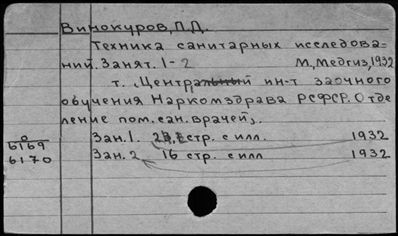 Винокуров, П.Д.
Техника санитарных исследова-
ний. Занят. 1-2 М, Медгиз, 1932
т. „Центральный ин-т заочного
обучения Наркомздрава РСФСР. Отде
ление пом. сан. врачей„.
О
6169 Зан. 1. стр. с илл. 1932
6170 Зан. 2 16 стр. с илл 1932